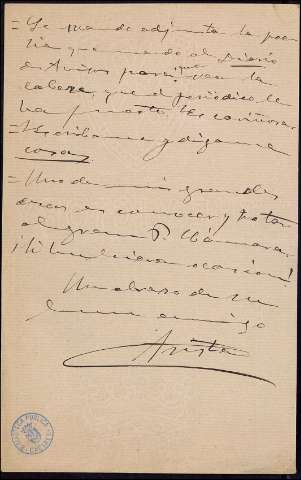 = Le mando adjunta la poe-
sía que mando al Diario
de Avisos para que vea la
cabeza, que el periódico le
ha puesto. Es cariñosa.
= Escribame y digame
cosas
= Uno de mis grandes
deseos es conocer y tratar
al gran P. Cámara.
¡Si hubiera ocasion!
Un abrazo de su
buen amigo